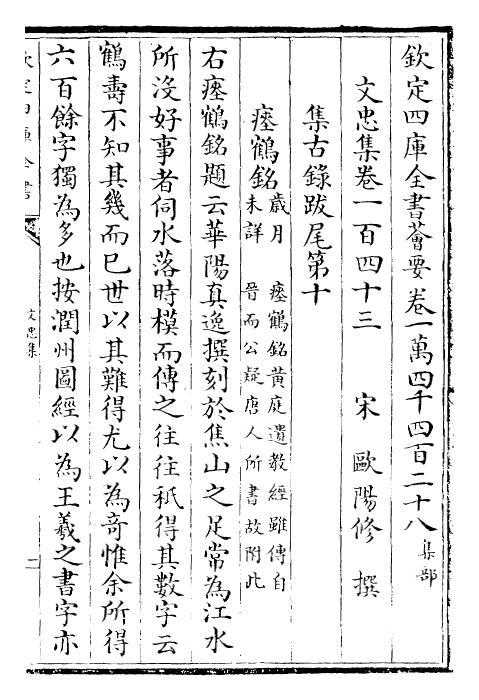 欽定四庫全書薈要卷一萬四千四百二十八 集部
文忠集卷一百四十三 宋 歐陽修 撰
集古錄跋尾第十
瘞鶴銘 歲月未詳 瘞鶴銘黄庭遺教經雖傳自晉而公疑唐人所書故附此
右瘞鶴銘題云華陽真逸撰刻於焦山之足常為江水
所沒好事者伺水落時模而傳之往往秖得其數字云
鶴壽不知其幾而已世以其難得尤以為奇惟余所得
六百餘字獨為多也按潤州圖經以為王羲之書字亦
欽定四庫全書
文忠集